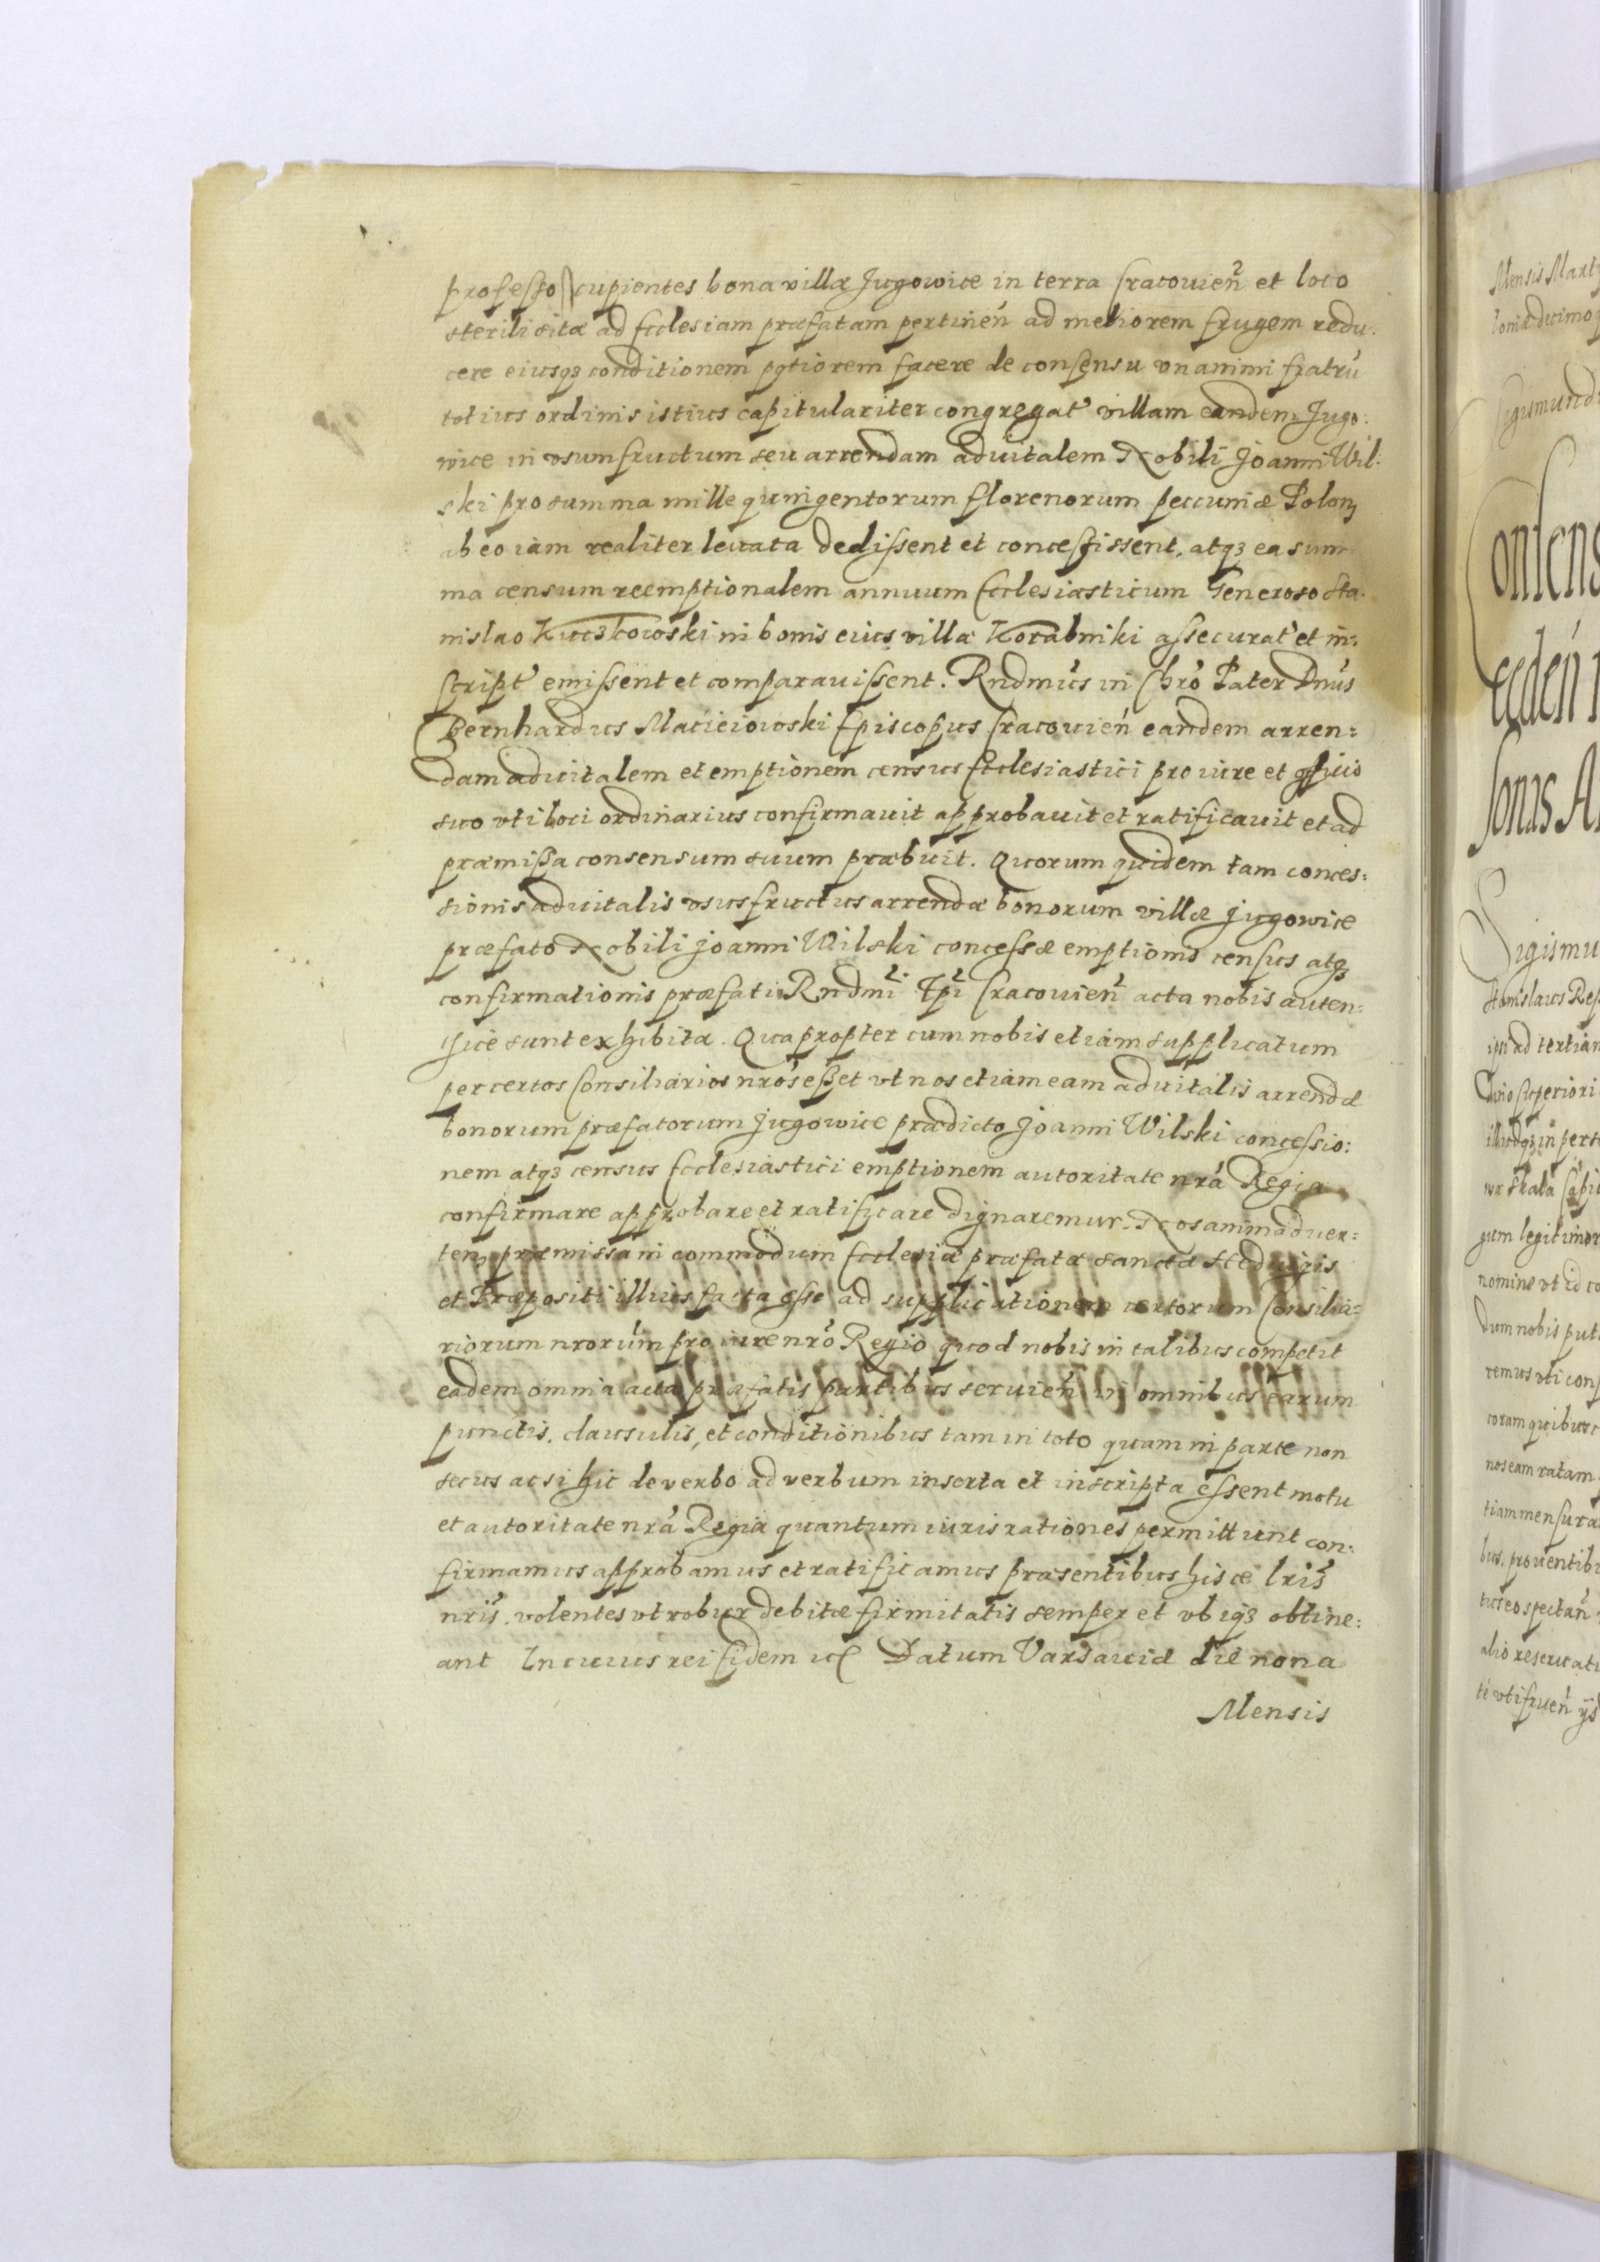 professo cupientes bona villæ Jugowice in terra Cracouien̄ et loco
sterili sitæ ad Ecclesiam præfatam pertinen̄ ad meliorem frugem redu-
cere eiusq3 conditionem potiorem facere de consensu vnanimi fratrū
totius ordinis istius capitulariter congregat' villam eandem Jugo:
wice in vsumfructum seu arrendam aduitalem Nobili Joanni Wil-
ski pro summa mille quingentorum florenorum peccuniæ Polon3
ab eo iam realiter leuata dedissent et concessissent, atq3 ea sum-
ma censum reemptionalem annuum Ecclesiasticum Generoso Sta-
nislao in bonis eius villa Korabniki assecurat' et in:
script' emissent et comparauissent. Rndmūs in Chrō Pater Dnūs
Bernhardus Macieiowski Episcopus Cracouien̄ eandem arren:
dam aduitalem et emptionem census Ecclesiastici pro iure et officio
suo vti loci ordinarius confirmauit approbauit et ratificauit et ad
præmissa consensum suum præbuit. Quorum quidem tam conces:
sionis aduitalis vsusfructus arrendæ bonorum villæ Jugowice
præfato Nobili Joanni Wilski concessæ emptionis census atq3
confirmationis præfati Rndmī Epī Cracouien̄ acta nobis auten:
tice sunt exhibita. Quapropter cum nobis etiam supplicatum
per certos Consiliarios nrōs esset vt nos etiam eam aduitalis arrendæ
bonorum præfatorum Jugowice prædicto Joanni Wilski concessio:
nem atq3 census Ecclesiastici emptionem autoritate nrā Regia
confirmare approbare et ratificare dignaremur. Nos animaduer:
ten3 præmissa in commodum Ecclesiæ præfatæ sanctæ Heduigis
et Præpositi illius facta esse ad supplicationem certorum Consilia:
riorum nrorūm pro iure nrō Regio quod nobis in talibus competit
eadem omnia acta præfatis partibus seruien̄ in omnibus earum
punctis, clausulis, et conditionibus tam in toto quam in parte non
secus ac si hic de verbo ad verbum inserta et inscripta essent motu
et autoritate nrā Regia quantum iuris rationes permittunt con:
firmamus approbamus et ratificamus præsentibus hisce lrīs
nrīs. volentes vt robur debitæ firmitatis semper et vbiq3 obtine:
ant In cuius rei fidem Datum Varsauiæ die nona
Mensis